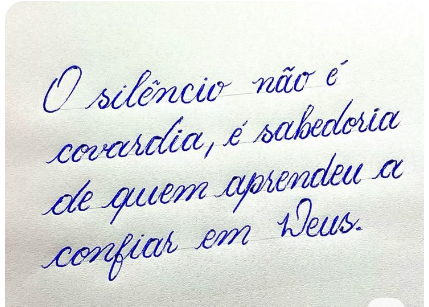 O silêncio não é
covardia, é sabedoria
de quem aprendeu a
confiar em Deus.